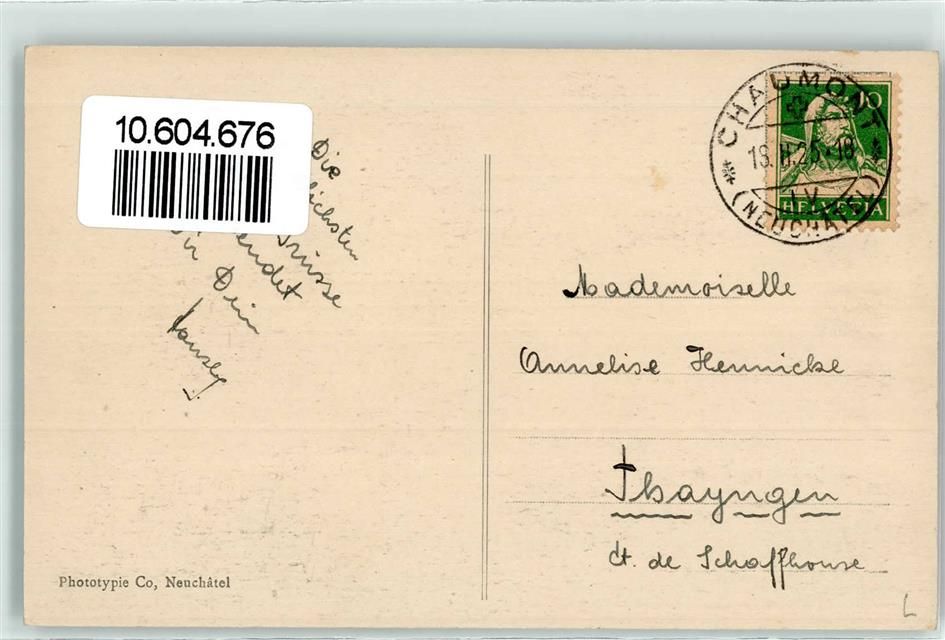 10.604.676
Die
lichsten
Grüsse
sendet
Dir Dein
CHAUMONT
10
18. II. 25 - 18
IV
HELVETIA
(NEUCHÂTEL)
Mademoiselle
Annelise Hennicke
Thayngen
Ct. de Schaffhouse
Phototypie Co, Neuchâtel
L